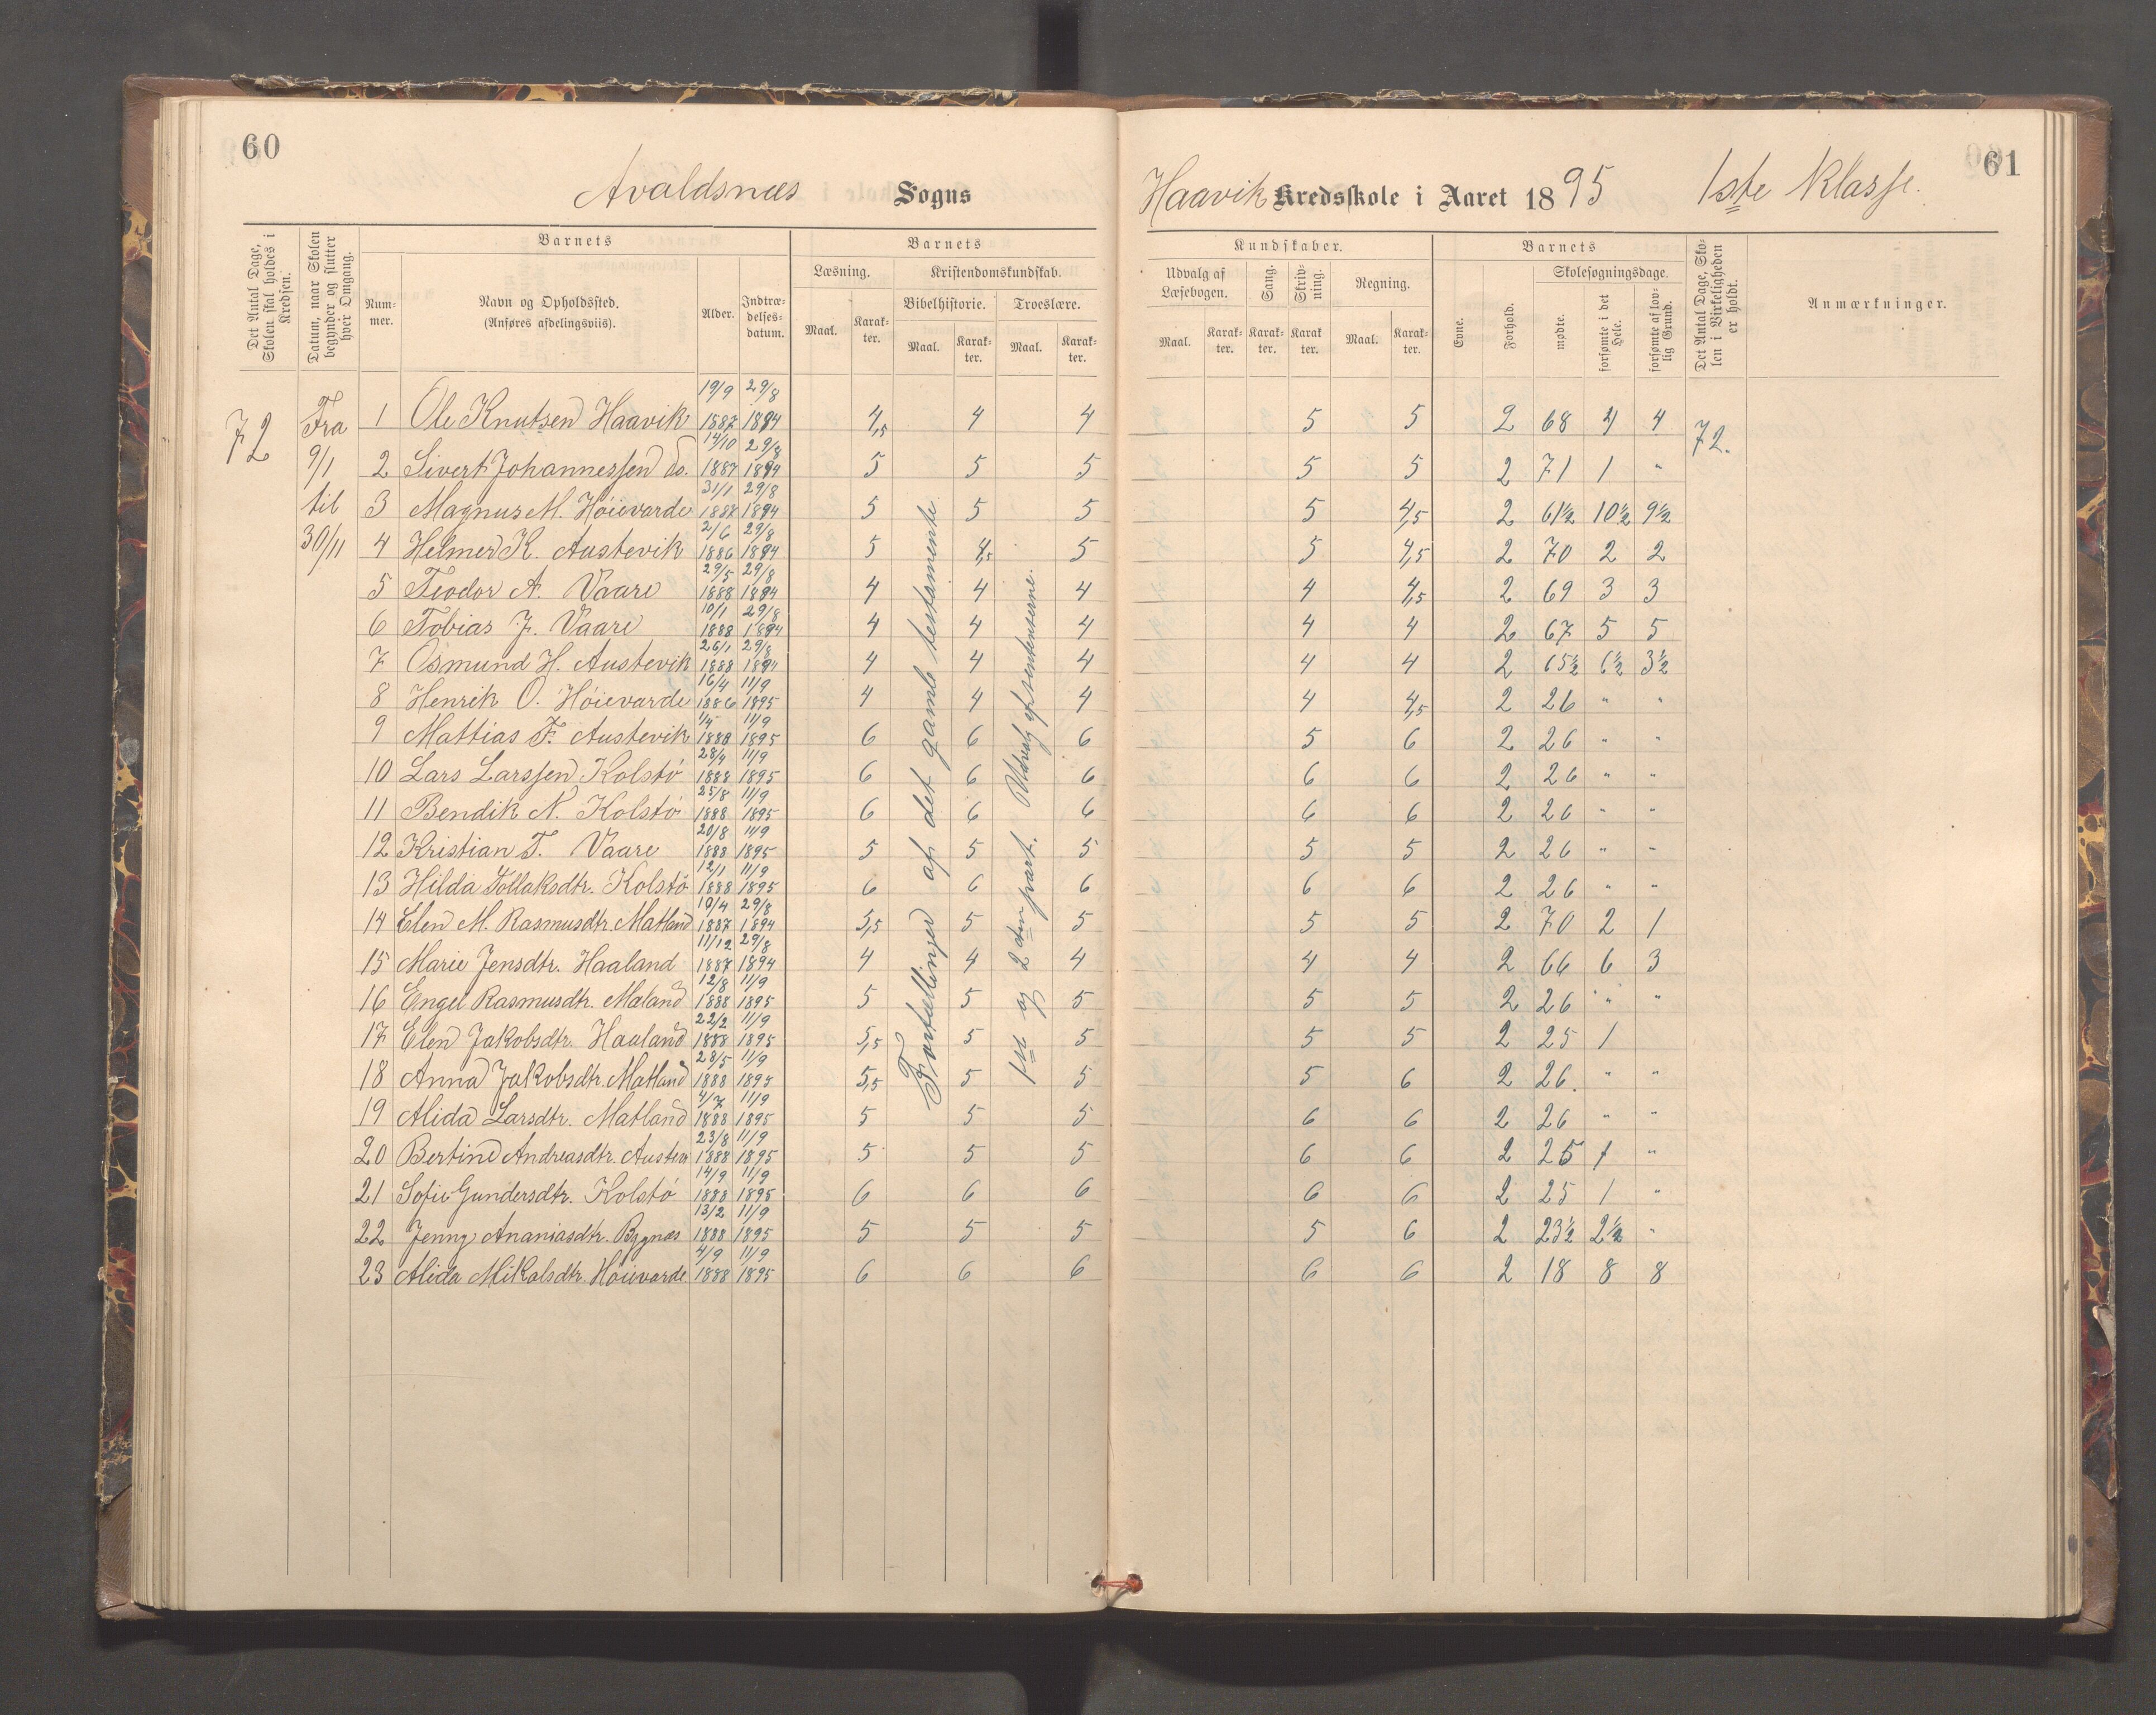 60
61
Avaldsnæs Sogns Haavik Kredsskole i Aaret 1895 1ste Klasse.
Det Antal Dage, Skolen skal holdes i Kredsen.
Datum, naar Skolen begynder og slutter hver Omgang.
Barnets
Nummer.
Navn og Opholdssted.
(Anføres afdelingsviis).
Alder.
Indtrædelsesdatum.
Barnets
Læsning.
Maal.
Karakter.
Kristendomskundskab.
Bibelhistorie.
Maal.
Karakter.
Troeslære.
Maal.
Karakter.
Kundskaber.
Udvalg af Læsebogen.
Maal.
Karakter.
Sang.
Karakter.
Skrivning.
Karakter.
Regning.
Maal.
Karakter.
Barnets
Evne.
Forhold.
Skolesøgningsdage.
mødte.
forsømte i det Hele.
forsømte af lovlig Grund.
Det Antal Dage, Skolen i Virkeligheden er holdt.
Anmærkninger.
72
Fra
9/1
til
30/11
72.
Fortællinger af det gamle testamente
1ste og 2den part. Udvalg af sentenserne.
1 Ole Knutsen Haavik 19/9 1887 29/8 1894 4,5 4 4 5 5 2 68 4 4
2 Sivert Johannessen do. 14/10 1887 29/8 1894 5 5 5 5 5 2 71 1 "
3 Magnus M. Høievarde 31/1 1887 29/8 1894 5 5 5 5 4,5 2 61½ 10½ 9½
4 Helmer K. Austevik 2/6 1886 29/8 1894 5 4,5 5 5 4,5 2 70 2 2
5 Teodor A. Vaare 29/5 1888 29/8 1894 4 4 4 4 4,5 2 69 3 3
6 Tobias J. Vaare 10/1 1888 29/8 1894 4 4 4 4 4 2 67 5 5
7 Osmund H. Austevik 26/1 1888 29/8 1894 4 4 4 4 4 2 65½ 6½ 3½
8 Henrik O. Høievarde 16/4 1886 11/9 1895 4 4 4 4 4,5 2 26 " "
9 Mattias F. Austevik 1/4 1888 11/9 1895 6 6 6 5 6 2 26 " "
10 Lars Larssen Kolstø 28/4 1888 11/9 1895 6 6 6 6 6 2 26 " "
11 Bendik N. Kolstø 25/8 1888 11/9 1895 6 6 6 6 6 2 26 " "
12 Kristian T. Vaare 20/8 1888 11/9 1895 5 5 5 5 5 2 26 " "
13 Hilda Tollaksdtr. Kolstø 12/1 1888 11/9 1895 6 6 6 6 6 2 26 " "
14 Elen M. Rasmusdtr. Matland 10/4 1887 29/8 1894 5,5 5 5 5 5 2 70 2 1
15 Marie Jensdtr. Haaland 11/12 1887 29/8 1894 4 4 4 4 4 2 66 6 3
16 Engel Rasmusdtr. Maland 12/8 1888 11/9 1895 5 5 5 5 5 2 26 " "
17 Elen Jakobsdtr. Haaland 22/2 1888 11/9 1895 5,5 5 5 5 5 2 25 1
18 Anna Jakobsdtr. Matland 28/5 1888 11/9 1895 5,5 5 5 5 6 2 26. " "
19 Alida Larsdtr. Matland 4/7 1888 11/9 1895 5 5 5 6 6 2 26 " "
20 Bertine Andreasdtr. Austev 23/8 1888 11/9 1895 5 5 5 6 6 2 25 1 "
21 Sofie Gundersdtr. Kolstø 14/9 1888 11/9 1895 6 6 6 6 6 2 25 1 "
22 Jenny Ananiasdtr. Bygnæs 13/2 1888 11/9 1895 5 5 5 5 6 2 23½ 2½ "
23 Alida Mikalsdtr. Høievarde 4/9 1888 11/9 1895 6 6 6 6 6 2 18 8 8